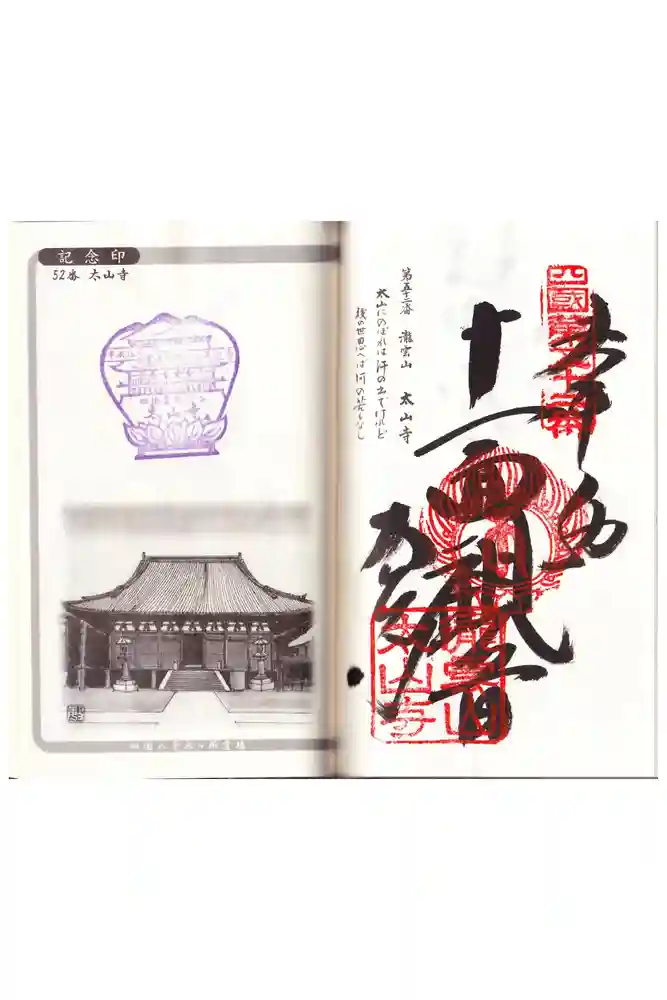 記念印
52番 太山寺
太山寺
四国八十八ヶ所霊場
第五十二番 瀧雲山 太山寺
太山にのぼれば汗の出でけれど
後の世思へば何の苦もなし
四國第五十二番
奉拝
十一面観音
太山寺
瀧雲山
太山寺